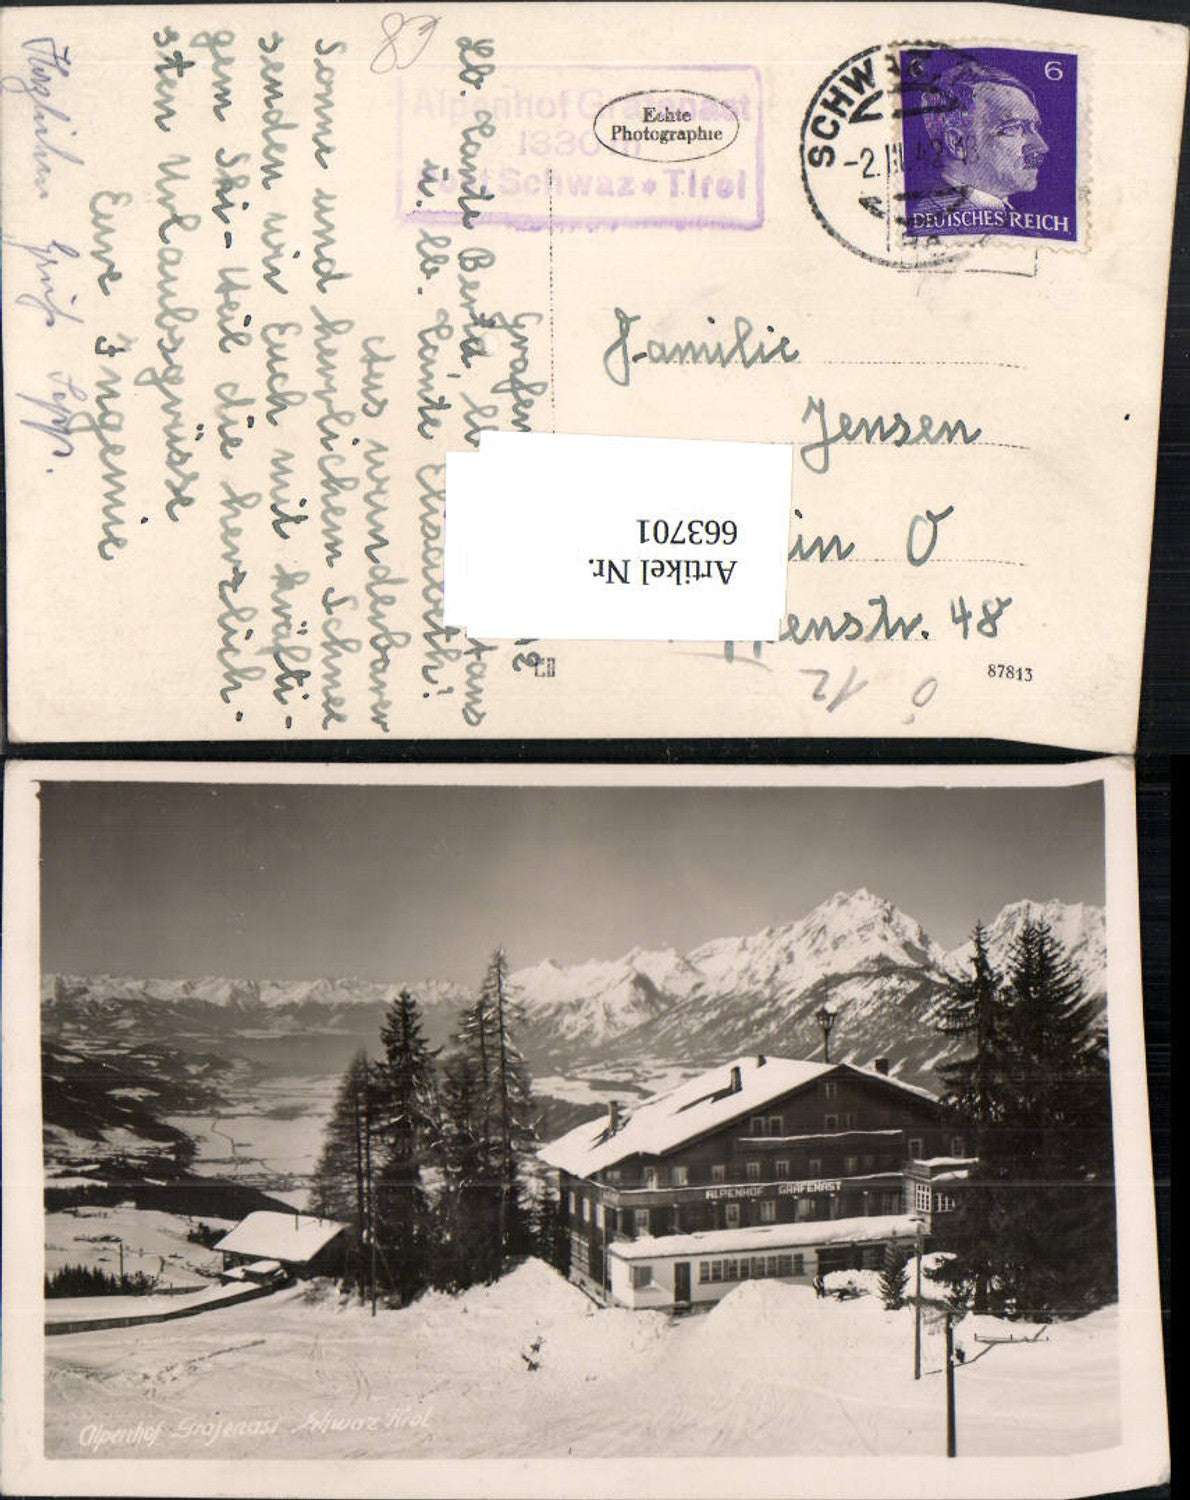 83
Alpenhof Grafenast
1330 m
Post Schwaz • Tirol
Echte
Photographie
SCHWAZ
-2.III.42
6
DEUTSCHES REICH
Grafen
12
Lb. Tante Berta, lb.
u. lb. Tante Elisabeth!
Aus wunderbarer
Sonne und herrlichem Schnee
senden wir Euch mit kräfti-
gem Ski-Heil die herzlich-
sten Urlaubsgrüsse
Eure Ingemie
Herzlichen Gruß Sepp.
Familie
Jensen
in O
enstr. 48
12
87813
Artikel Nr.
663701
ALPENHOF GRAFENAST
Alpenhof Grafenast Schwaz Tirol